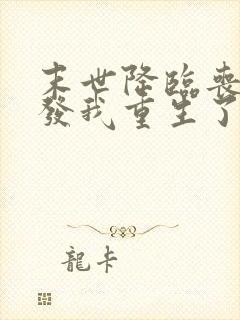 末世降臨喪
發我重生了
龍卡